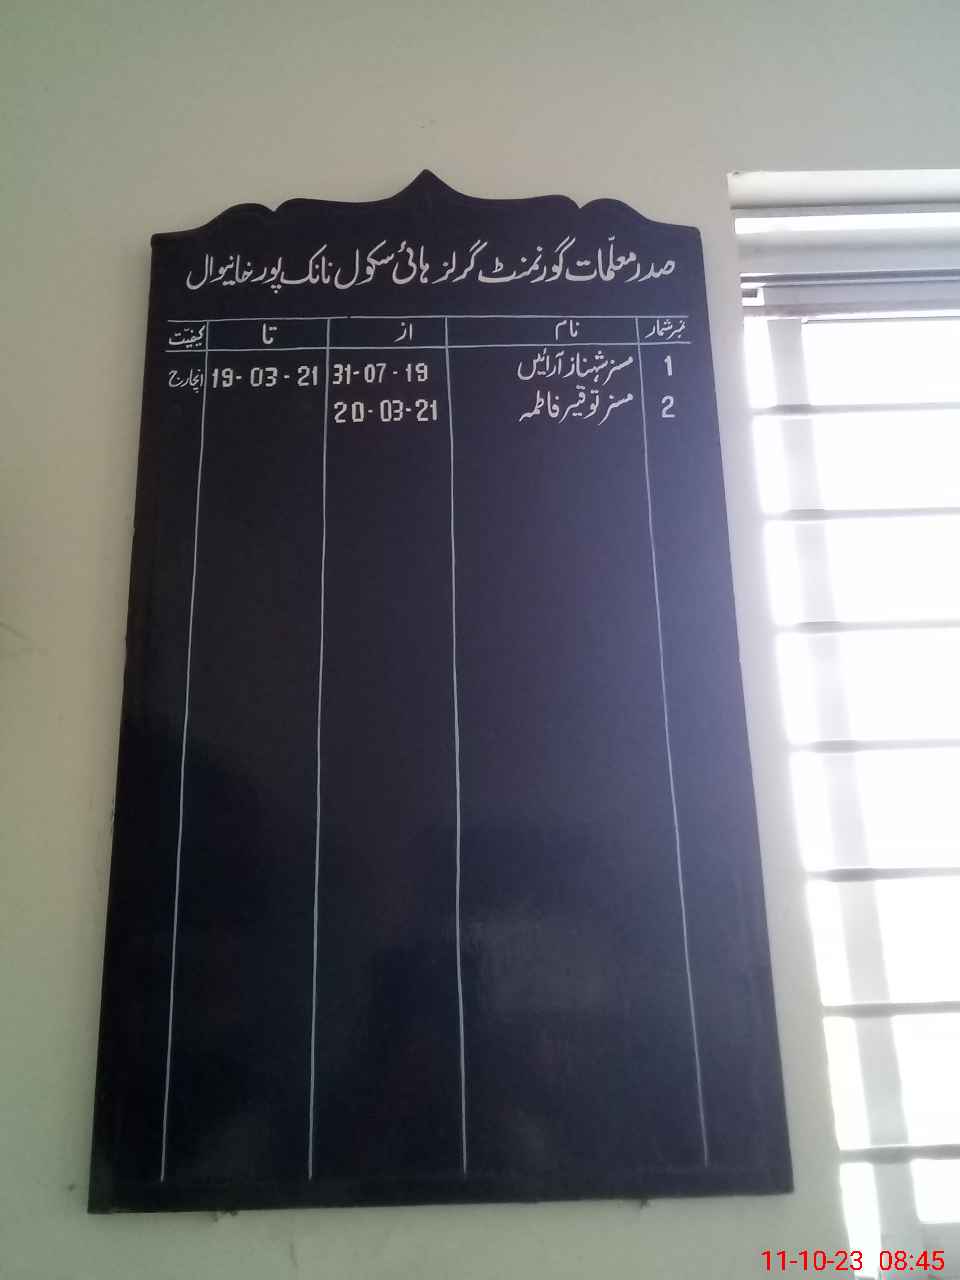 صدر معلّمات گورنمنٹ گرلز ہائی سکول نانک پور خانیوال
نمبر شمار نام از تا کیفیّت
1 مسز شہناز آرائیں 31-07-19 19-03-21 انچارج
2 مسز توقیر فاطمہ 20-03-21
11-10-23 08:45